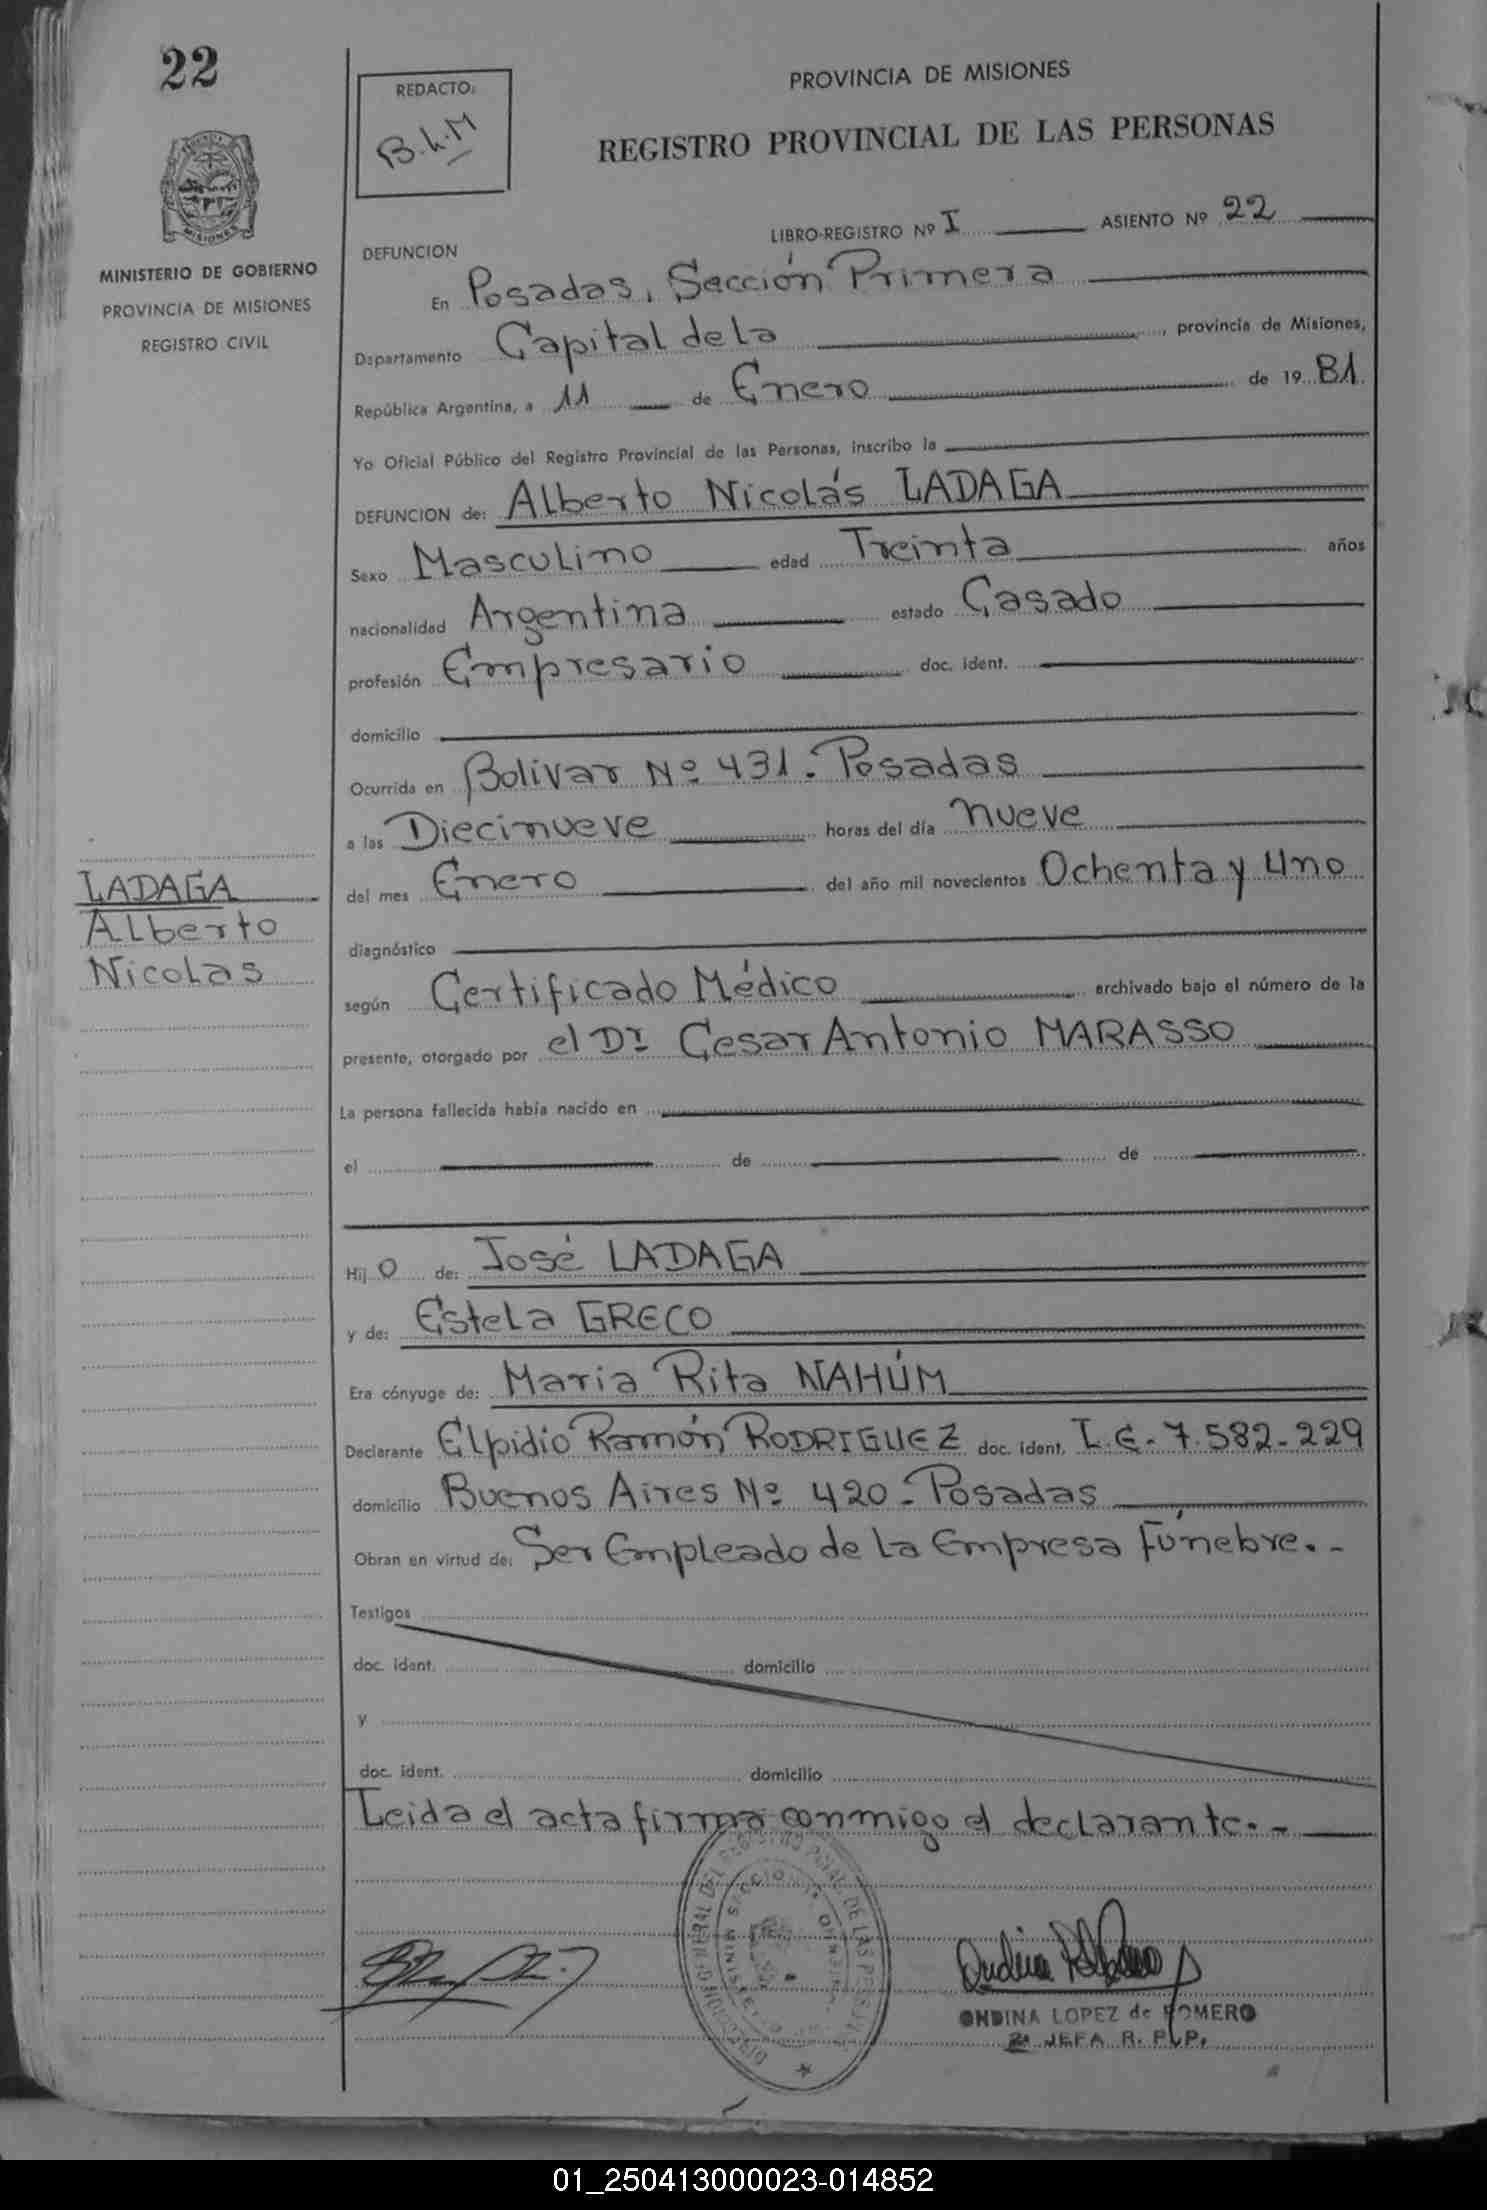 22
MINISTERIO DE GOBIERNO
PROVINCIA DE MISIONES
REGISTRO CIVIL
LADAGA
Alberto
Nicolas
REDACTO:
B.L.M
PROVINCIA DE MISIONES
REGISTRO PROVINCIAL DE LAS PERSONAS
LIBRO-REGISTRO Nº I ASIENTO Nº 22
DEFUNCION
En Posadas, Sección Primera
Departamento Capital de la provincia de Misiones,
República Argentina, a 11 de Enero de 19 81
Yo Oficial Público del Registro Provincial de las Personas, inscribo la
DEFUNCION de: Alberto Nicolás LADAGA
Sexo Masculino edad Treinta años
nacionalidad Argentina estado Casado
profesión Empresario doc. ident.
domicilio
Ocurrida en Bolivar Nº 431 - Posadas
a las Diecinueve horas del día nueve
del mes Enero del año mil novecientos Ochenta y Uno
diagnóstico
según Certificado Médico archivado bajo el número de la
presente, otorgado por el Dr Cesar Antonio MARASSO
La persona fallecida había nacido en
el de de
Hijo de: José LADAGA
y de: Estela GRECO
Era cónyuge de: Maria Rita NAHÚM
Declarante Elpidio Ramón RODRIGUEZ doc. ident. L.E. - 7.582.229
domicilio Buenos Aires Nº 420 - Posadas
Obran en virtud de: Ser Empleado de la Empresa Fúnebre.-
Testigos
doc. ident. domicilio
y
doc. ident. domicilio
Leida el acta firma conmigo el declarante.-
ONDINA LOPEZ de ROMERO
2ª JEFA R. P. P.
01_250413000023-014852